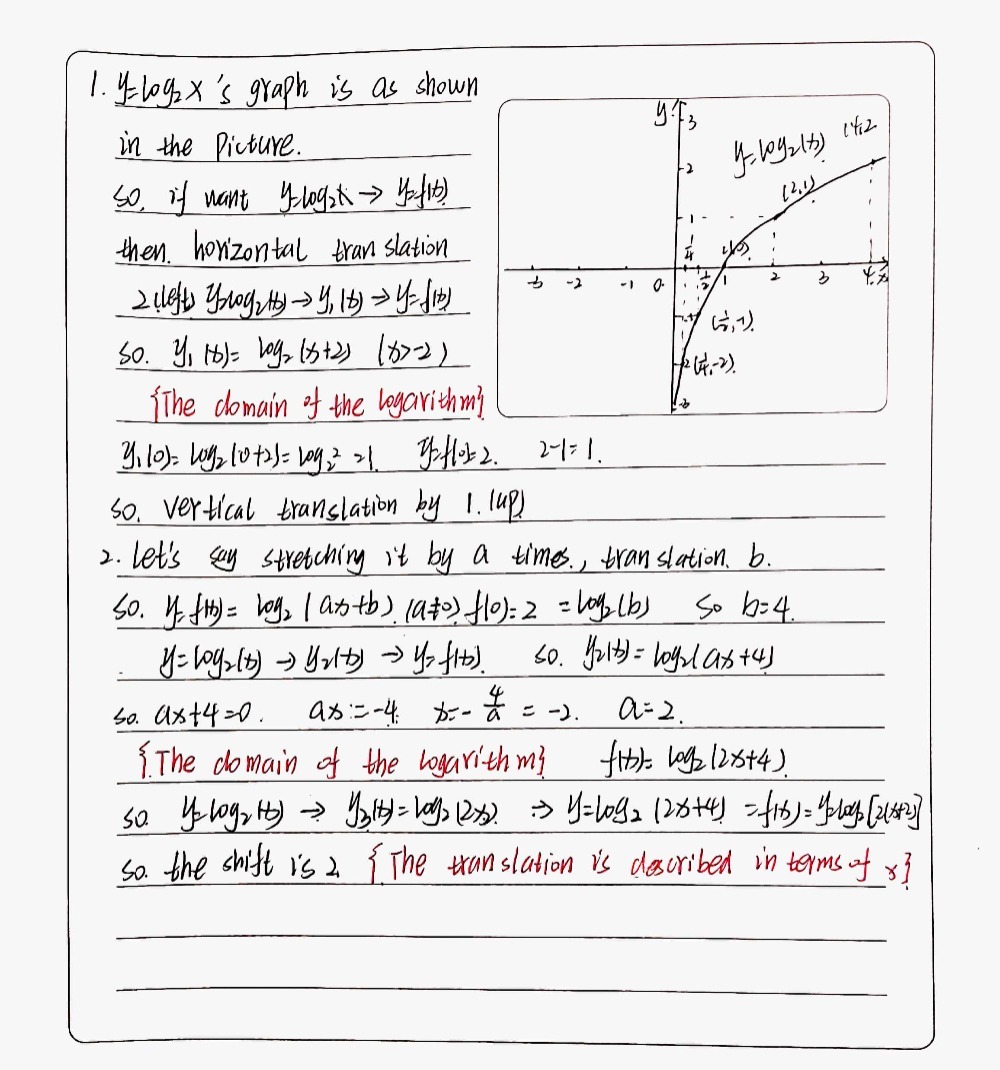 1. y=log₂x 's graph is as shown
in the Picture.
so, if want y=log₂x → y=f(x)
then. horizontal translation
2(left) y=log₂(x) → y₁(x) → y=f(x)
so. y₁(x)= log₂(x+2) (x>-2)
{The domain of the logarithm}
y₁(0)= log₂(0+2)= log₂2 =1. y=f(0)=2. 2-1=1.
so. vertical translation by 1. (up)
2. Let's say stretching it by a times., translation. b.
so. y=f(x)= log₂(ax+b). (a≠0) f(0)=2 =log₂(b) so b=4.
y=log₂(x) → y₂(x) → y=f(x). so. y₂(x)=log₂(ax+4)
so. ax+4=0. ax=-4. x=-4/a = -2. a=2.
{The domain of the logarithm} f(x)= log₂(2x+4).
so y=log₂(x) → y₃(x)=log₂(2x). → y=log₂(2x+4) =f(x)=y=log₂[2(x+2)]
so the shift is 2 {The translation is described in terms of x}
y
3
y=log₂(x)
(4,2
2
(2,1)
1
1/4
(1,0).
-3 -2 -1 0 1/2 1 2 3 4 x
-1
(1/2,-1).
-2
(1/4,-2).
-3